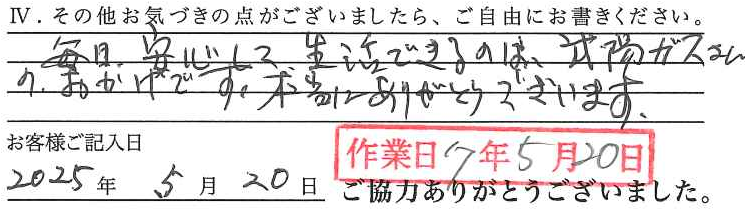 Ⅳ．その他お気づきの点がございましたら、ご自由にお書きください。
毎日、安心して生活できるのは、武陽ガスさん
の、おかげです。本当にありがとうございます。
お客様ご記入日
作業日 7年5月20日
2025年 5月 20日 ご協力ありがとうございました。